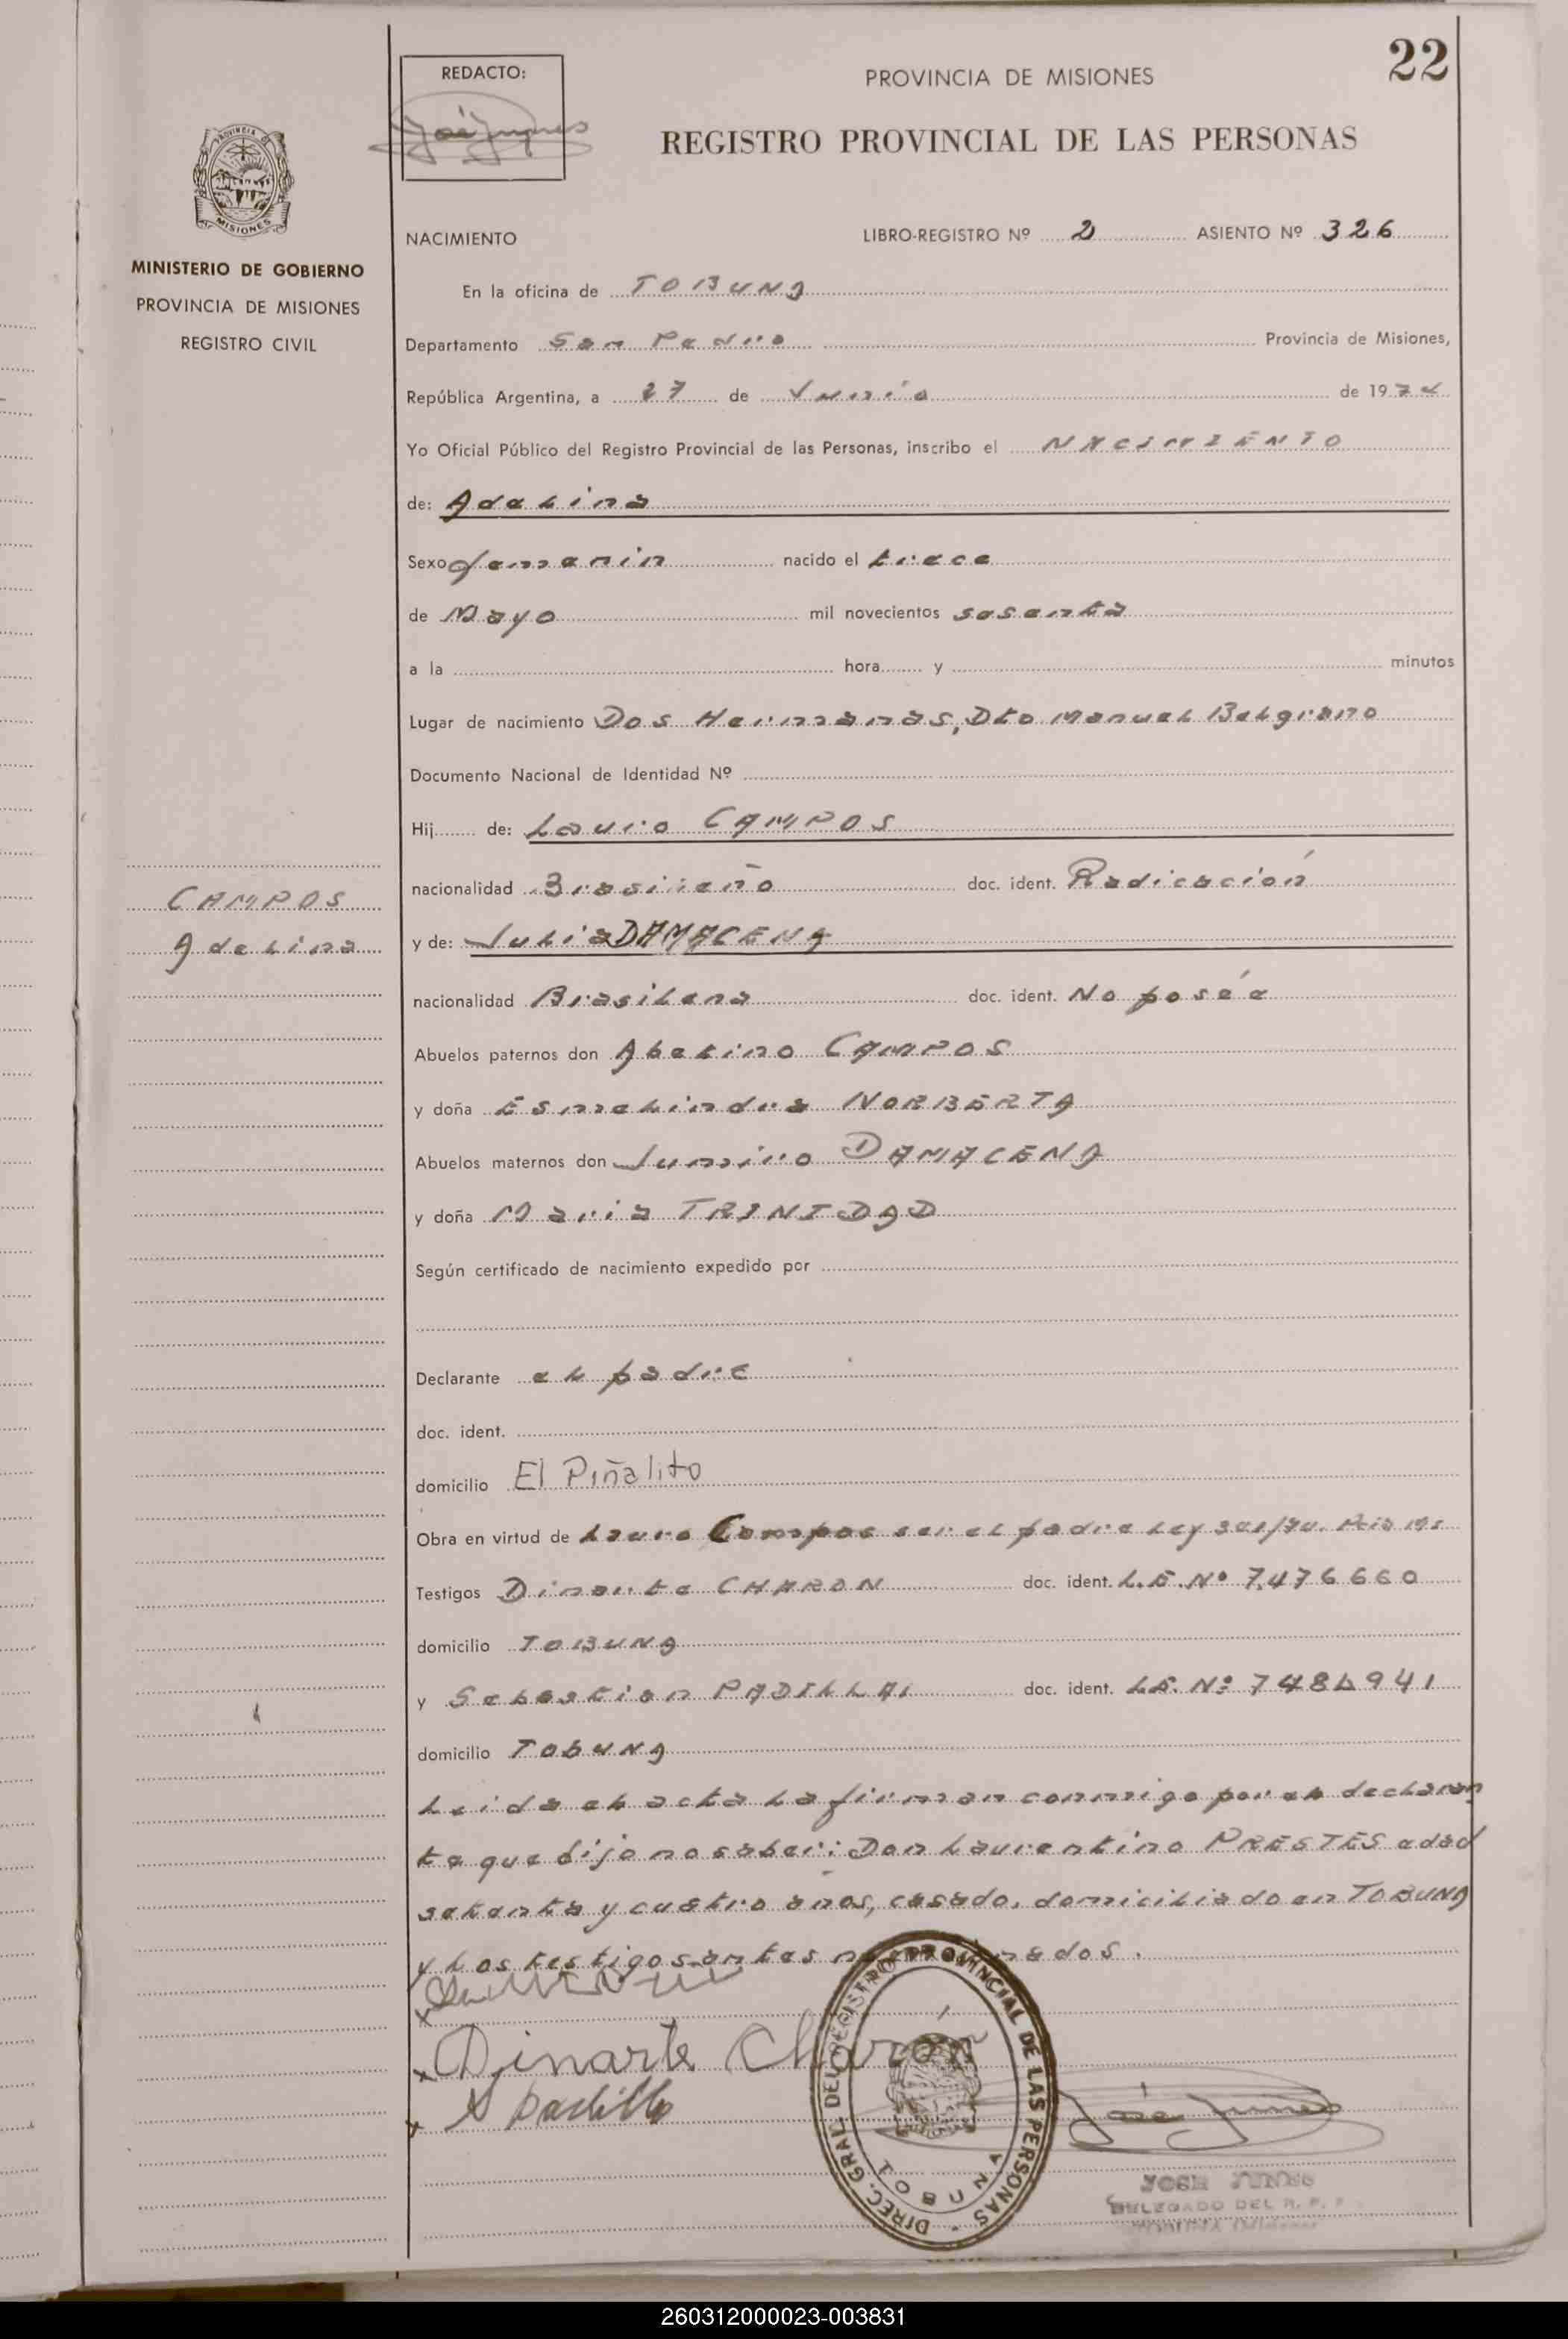 22
REDACTO:
PROVINCIA DE MISIONES
REGISTRO PROVINCIAL DE LAS PERSONAS
PROVINCIA DE MISIONES
MINISTERIO DE GOBIERNO
PROVINCIA DE MISIONES
REGISTRO CIVIL
NACIMIENTO LIBRO-REGISTRO Nº 2 ASIENTO Nº 326
En la oficina de TOBUNA
Departamento San Pedro Provincia de Misiones,
República Argentina, a 27 de Junio de 1974
Yo Oficial Público del Registro Provincial de las Personas, inscribo el NACIMIENTO
de: Adelina
Sexo femenin nacido el trece
de Mayo mil novecientos sesenta
a la hora y minutos
Lugar de nacimiento Dos Hermanas, Dto Manuel Belgrano
Documento Nacional de Identidad Nº
Hij de: Lauro CAMPOS
nacionalidad Brasileño doc. ident. Radicación
CAMPOS
Adelina
y de: Julia DAMACENA
nacionalidad Brasilena doc. ident. No poseé
Abuelos paternos don Abelino CAMPOS
y doña Esmelindra NORBERTA
Abuelos maternos don Jumiro DAMACENA
y doña Maria TRINIDAD
Según certificado de nacimiento expedido por
Declarante el padre
doc. ident.
domicilio El Piñalito
Obra en virtud de Lauro Campos ser el padre Ley
Testigos Dinarte CHARON doc. ident. L.E. Nº 7.476660
domicilio TOBUNA
y Sebastian PADILLA doc. ident. L.E. Nº
domicilio TobUNA
Leida el acta la firman conmigo por el declaran
te que dijo no saber: Don Laurentino PRESTES edad
setenta y cuatro anos, casado, domiciliado en TOBUNA
y los testigos antes
Dinarte Charón
S Padillo
DIREC. GRAL. DEL REGISTRO PROVINCIAL DE LAS PERSONAS
TOBUNA
JOSE
DELEGADO DEL R. P. P.
260312000023-003831